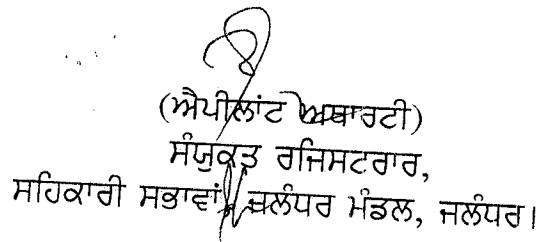 (ਐਪੀਲਾਂਟ ਅਥਾਰਟੀ)
ਸੰਯੁਕਤ ਰਜਿਸਟਰਾਰ,
ਸਹਿਕਾਰੀ ਸਭਾਵਾਂ ਜਲੰਧਰ ਮੰਡਲ, ਜਲੰਧਰ।